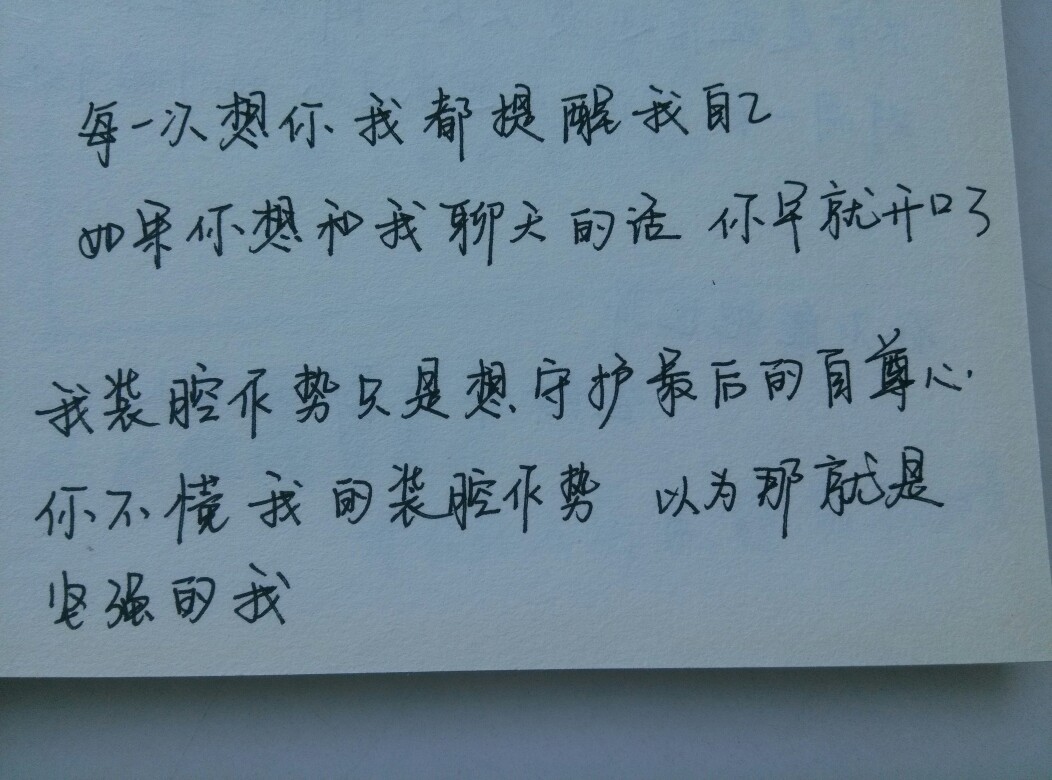 每一次想你我都提醒我自己
如果你想和我聊天的话 你早就开口了
我装腔作势只是想守护最后的自尊心.
你不懂我的装腔作势 以为那就是
坚强的我